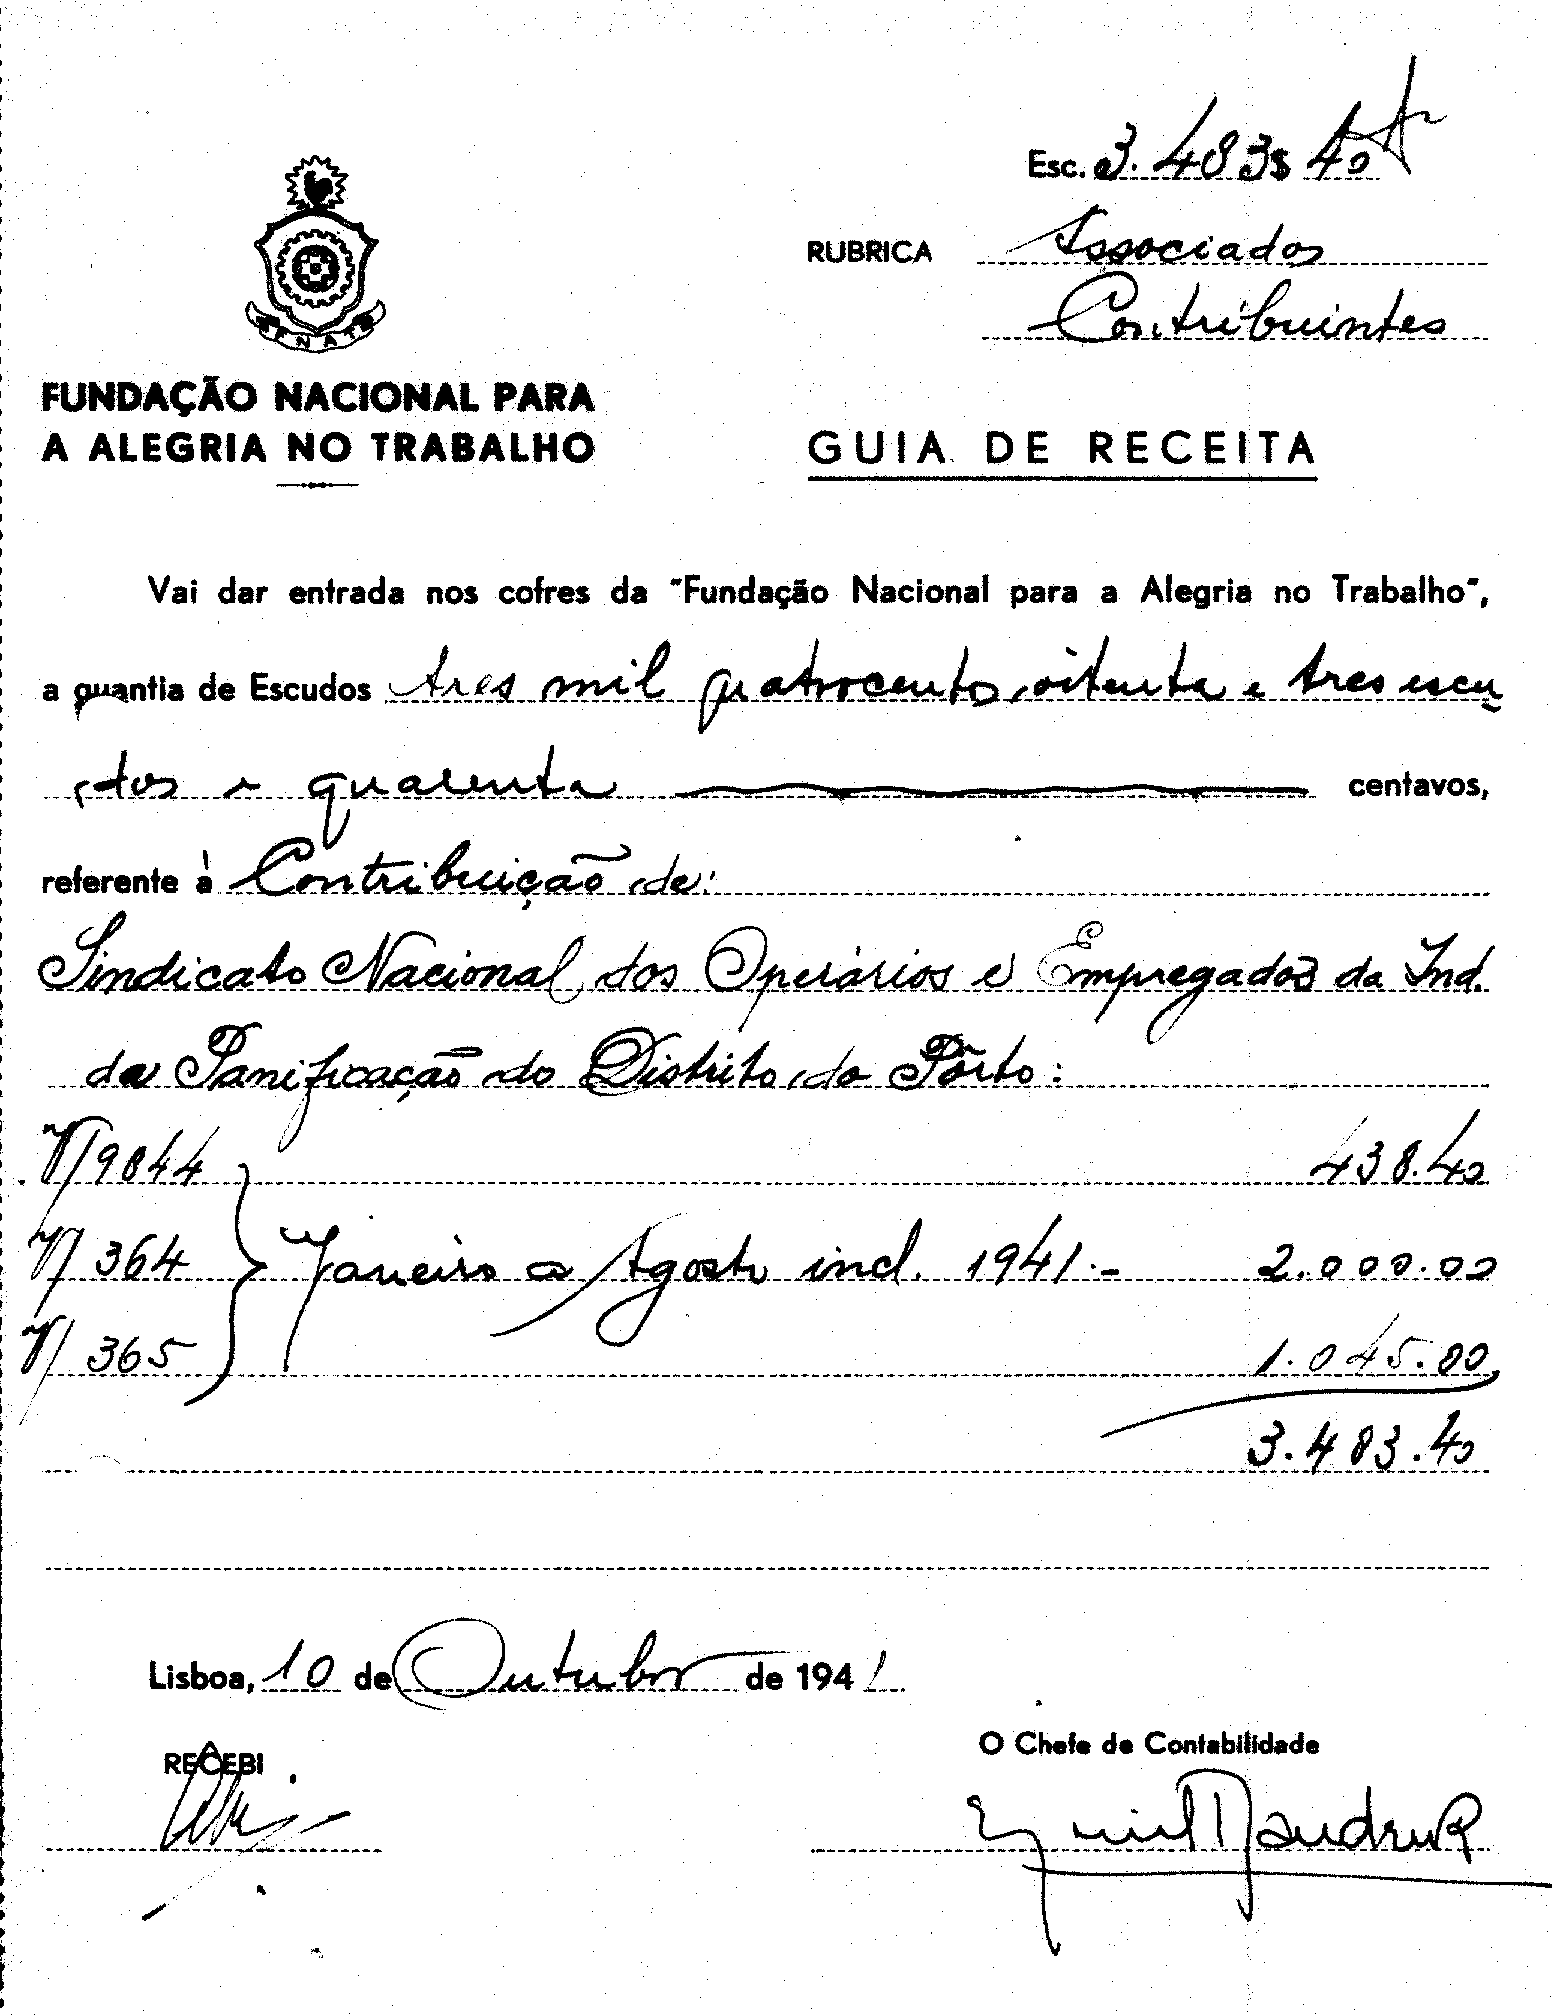 Esc. 3.483$40
RUBRICA Associados
Contribuintes
FENAT
FUNDAÇÃO NACIONAL PARA
A ALEGRIA NO TRABALHO
GUIA DE RECEITA
Vai dar entrada nos cofres da "Fundação Nacional para a Alegria no Trabalho",
a quantia de Escudos tres mil quatrocentos, oitenta e tres escu
dos e quarenta centavos,
referente à Contribuição de:
Sindicato Nacional dos Operários e Empregados da Ind.
da Panificação do Distrito do Pôrto:
9844 438.40
364 Janeiro a Agosto incl. 1941.- 2.000.00
365 1.045.00
3.483.40
Lisboa, 10 de Outubro de 1941
RECEBI
O Chefe de Contabilidade